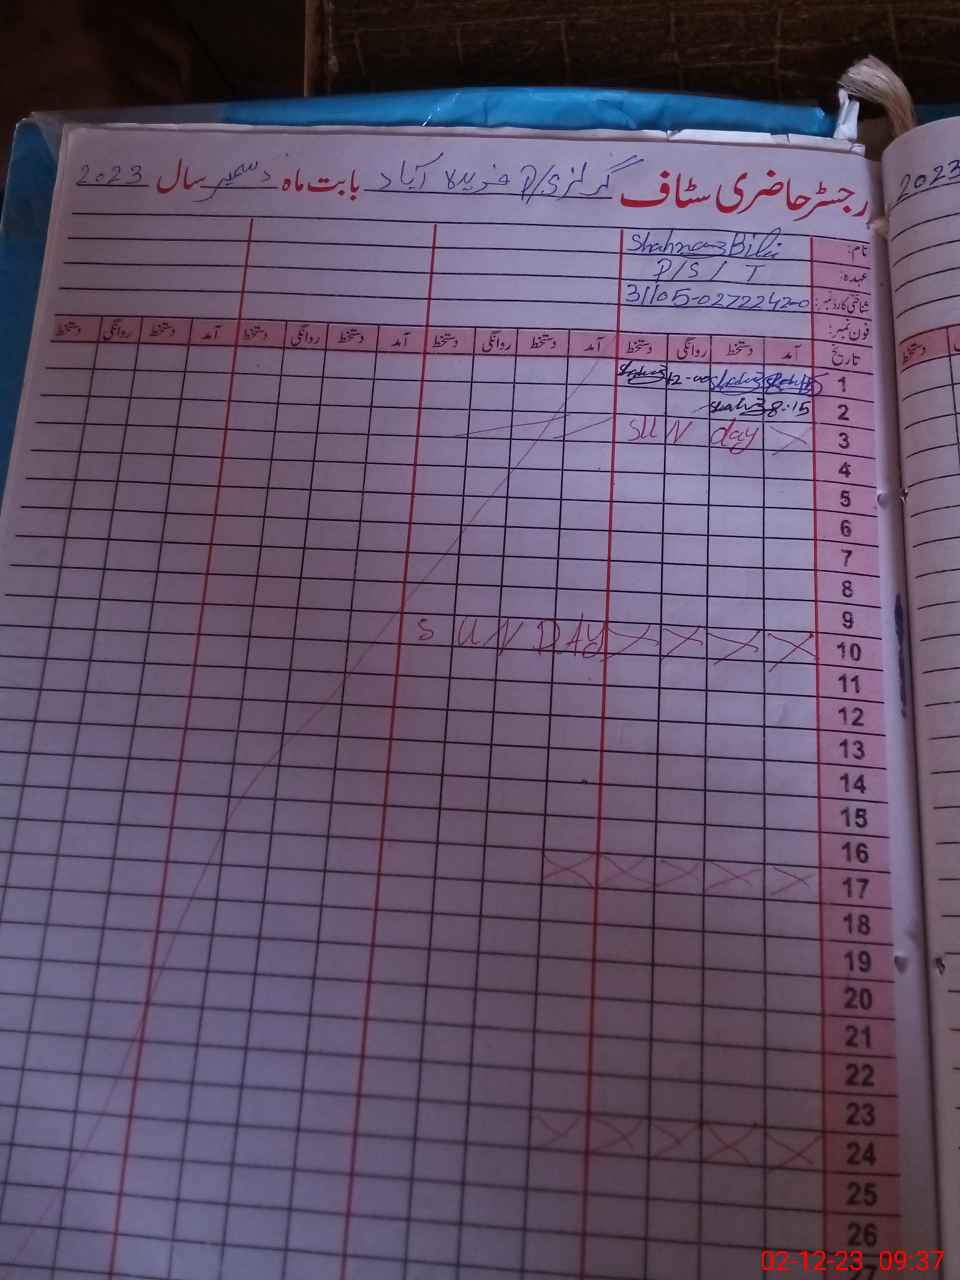 رجسٹر حاضری سٹاف گرلز P/S فرید آباد بابت ماہ دسمبر سال 2023
2023
نام: Shahnaz Bibi
عہدہ: P/S/T
شناختی کارڈ نمبر: 31105-0272242-0
فون نمبر:
تاریخ آمد دستخط روانگی دستخط آمد دستخط روانگی دستخط آمد دستخط روانگی دستخط آمد دستخط روانگی دستخط
دستخط
1 12-00
2 8:15
3 SUN day
4
5
6
7
8
9
10 SUNDAY
11
12
13
14
15
16
17
18
19
20
21
22
23
24
25
26
02-12-23 09:37